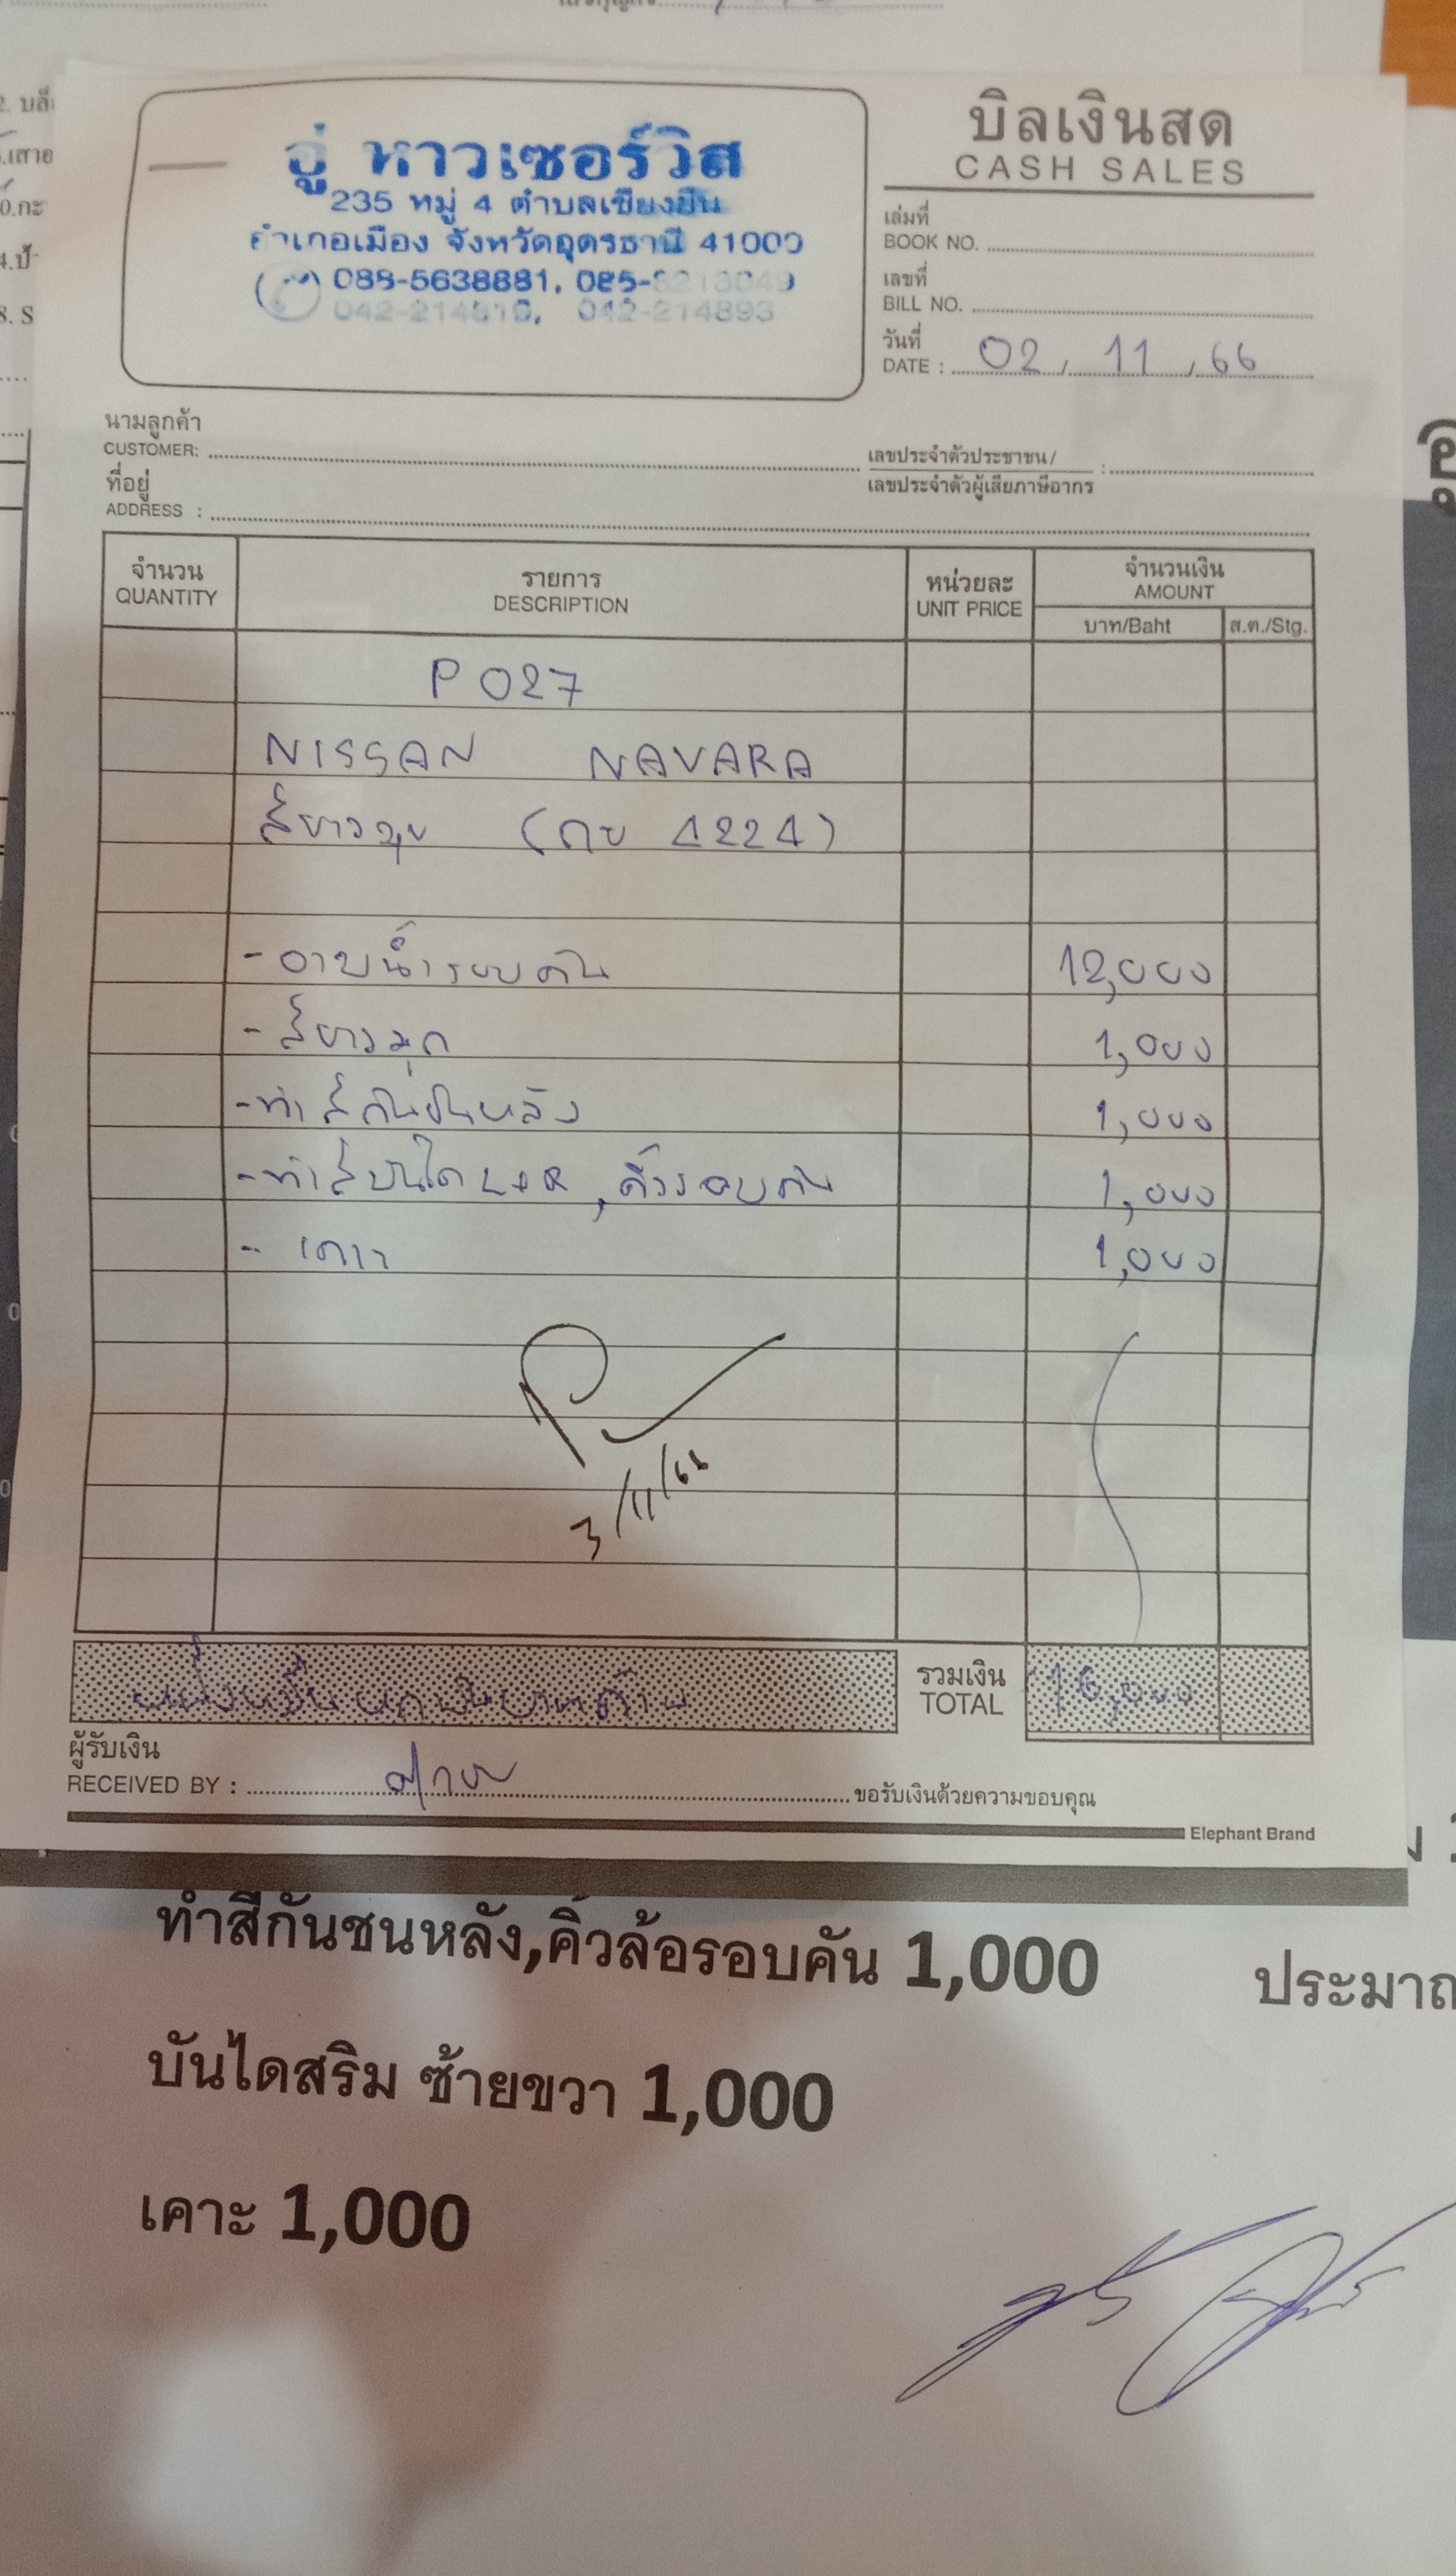 2. บล็
อู่ หาวเซอร์วิส
235 หมู่ 4 ตำบลเชียงยืน
อำเภอเมือง จังหวัดอุดรธานี 41000
088-5638881, 085-
042-214810, 042-214893
บิลเงินสด
CASH SALES
เล่มที่
BOOK NO.
เลขที่
BILL NO.
วันที่
DATE : 02 / 11 / 66
นามลูกค้า
CUSTOMER:
เลขประจำตัวประชาชน/
เลขประจำตัวผู้เสียภาษีอากร :
ที่อยู่
ADDRESS :
จำนวน รายการ หน่วยละ จำนวนเงิน
QUANTITY DESCRIPTION UNIT PRICE AMOUNT
บาท/Baht ส.ต./Stg.
P 027
NISSAN NAVARA
สีขาวมุข (กย 4224)
- อาบน้ำรอบคัน 12,000
- สีขาวมุก 1,000
- ทำสีกันชนหลัง 1,000
- ทำสีบันได L+R, คิ้วรอบคัน 1,000
- เคาะ 1,000
3/11/66
หนึ่งหมื่นหกพันบาทถ้วน
รวมเงิน
TOTAL 16,000
ผู้รับเงิน
RECEIVED BY :
ขอรับเงินด้วยความขอบคุณ
Elephant Brand
ทำสีกันชนหลัง,คิ้วล้อรอบคัน 1,000
ประมาณ
บันไดสริม ซ้ายขวา 1,000
เคาะ 1,000